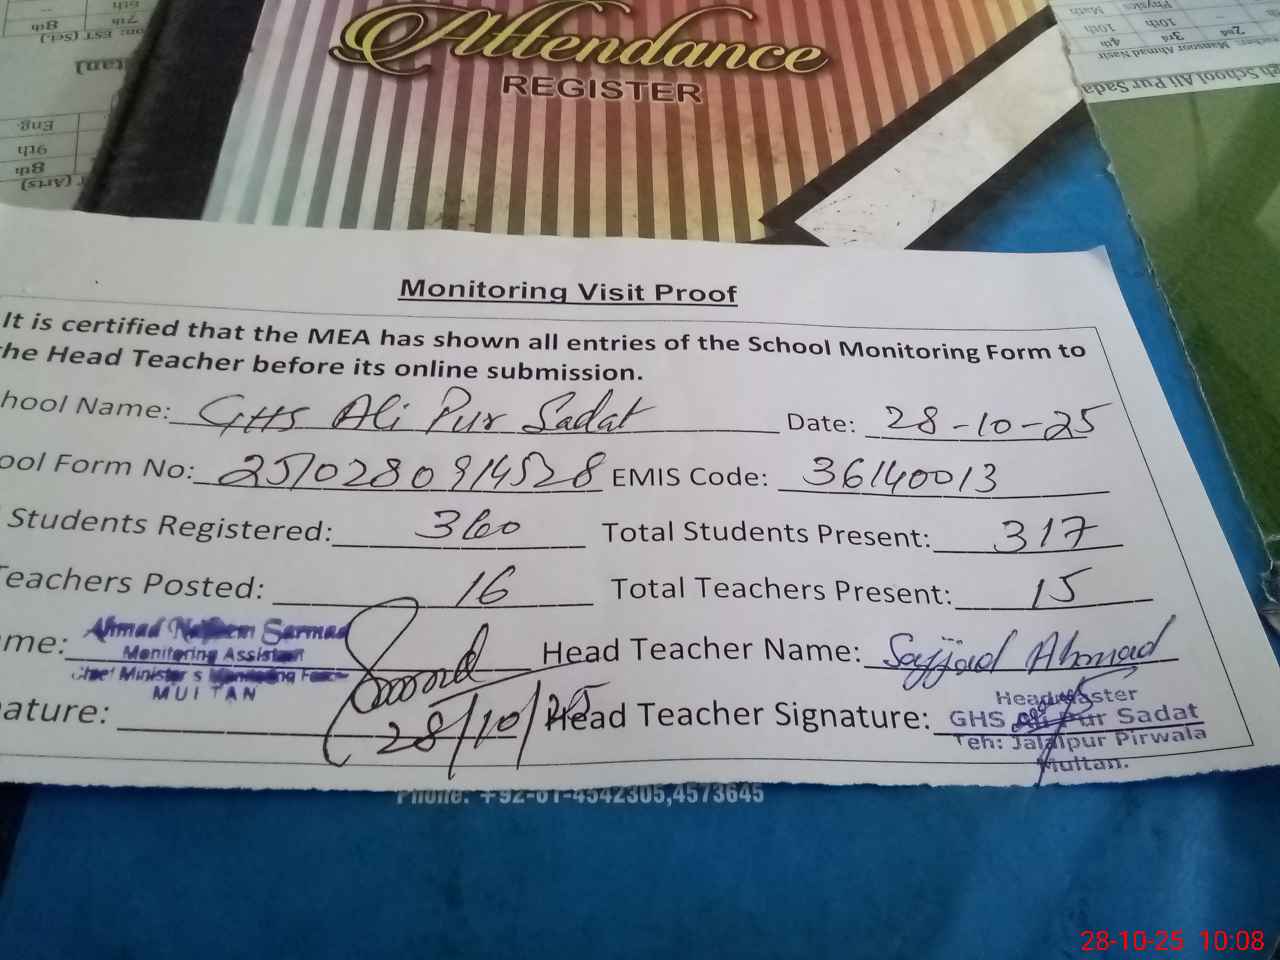 Attendance
REGISTER
Monitoring Visit Proof
It is certified that the MEA has shown all entries of the School Monitoring Form to
he Head Teacher before its online submission.
hool Name: GHS Ali Pur Sadat Date: 28-10-25
ool Form No: 2510280914528 EMIS Code: 36140013
Students Registered: 360 Total Students Present: 317
Teachers Posted: 16 Total Teachers Present: 15
me: Ahmad Sarmad Head Teacher Name: Sajjad Ahmad
Monitoring Assistant
Chief Minister's Monitoring Force
MULTAN
ature: 28/10/25 Head Teacher Signature:
Headmaster
GHS Ali Pur Sadat
Teh: Jalalpur Pirwala
Multan.
Phone: +92-61-4542305,4573645
28-10-25 10:08